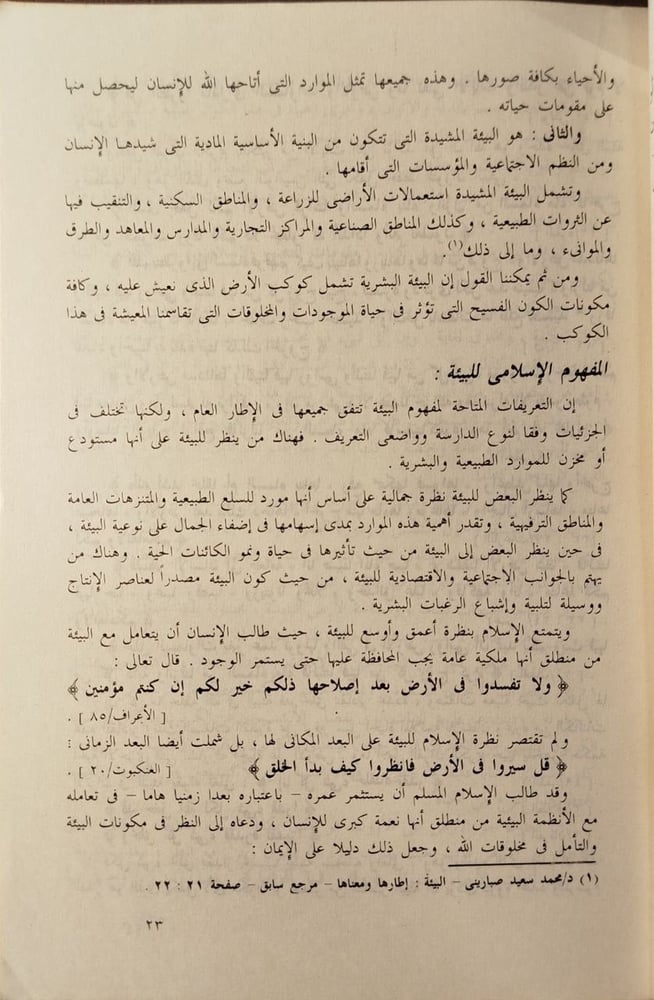 والأحياء بكافة صورها . وهذه جميعها تمثل الموارد التى أتاحها الله للإنسان ليحصل منها
على مقومات حياته .
والثانى : هو البيئة المشيدة التى تتكون من البنية الأساسية المادية التى شيدها الإنسان
ومن النظم الاجتماعية والمؤسسات التى أقامها .
وتشمل البيئة المشيدة استعمالات الأراضى للزراعة ، والمناطق السكنية ، والتنقيب فيها
عن الثروات الطبيعية ، وكذلك المناطق الصناعية والمراكز التجارية والمدارس والمعاهد والطرق
والموانىء ، وما إلى ذلك(١).
ومن ثم يمكننا القول إن البيئة البشرية تشمل كوكب الأرض الذى نعيش عليه ، وكافة
مكونات الكون الفسيح التى تؤثر فى حياة الموجودات والمخلوقات التى تقاسمنا المعيشة فى هذا
الكوكب .
المفهوم الإسلامى للبيئة :
إن التعريفات المتاحة لمفهوم البيئة تتفق جميعها فى الإطار العام ، ولكنها تختلف فى
الجزئيات وفقا لنوع الدارسة وواضعى التعريف . فهناك من ينظر للبيئة على أنها مستودع
أو مخزن للموارد الطبيعية والبشرية .
كما ينظر البعض للبيئة نظرة جمالية على أساس أنها مورد للسلع الطبيعية والمتنزهات العامة
والمناطق الترفيهية ، وتقدر أهمية هذه الموارد بمدى إسهامها فى إضفاء الجمال على نوعية البيئة ،
فى حين ينظر البعض إلى البيئة من حيث تأثيرها فى حياة ونمو الكائنات الحية . وهناك من
يهتم بالجوانب الاجتماعية والاقتصادية للبيئة ، من حيث كون البيئة مصدراً لعناصر الإنتاج
ووسيلة لتلبية وإشباع الرغبات البشرية .
ويتمتع الإسلام بنظرة أعمق وأوسع للبيئة ، حيث طالب الإنسان أن يتعامل مع البيئة
من منطلق أنها ملكية عامة يجب المحافظة عليها حتى يستمر الوجود . قال تعالى :
﴿ ولا تفسدوا فى الأرض بعد إصلاحها ذلكم خير لكم إن كنتم مؤمنين ﴾
[ الأعراف/٨٥ ] .
ولم تقتصر نظرة الإسلام للبيئة على البعد المكانى لها ، بل شملت أيضا البعد الزمانى :
﴿ قل سيروا فى الأرض فانظروا كيف بدأ الخلق ﴾ [ العنكبوت/٢٠ ] .
وقد طالب الإسلام المسلم أن يستثمر عمره – باعتباره بعدا زمنيا هاما – فى تعامله
مع الأنظمة البيئية من منطلق أنها نعمة كبرى للإنسان ، ودعاه إلى النظر فى مكونات البيئة
والتأمل فى مخلوقات الله ، وجعل ذلك دليلا على الإيمان :
(١) د/محمد سعيد صبارينى – البيئة : إطارها ومعناها – مرجع سابق – صفحة ٢١ : ٢٢ .
٢٣